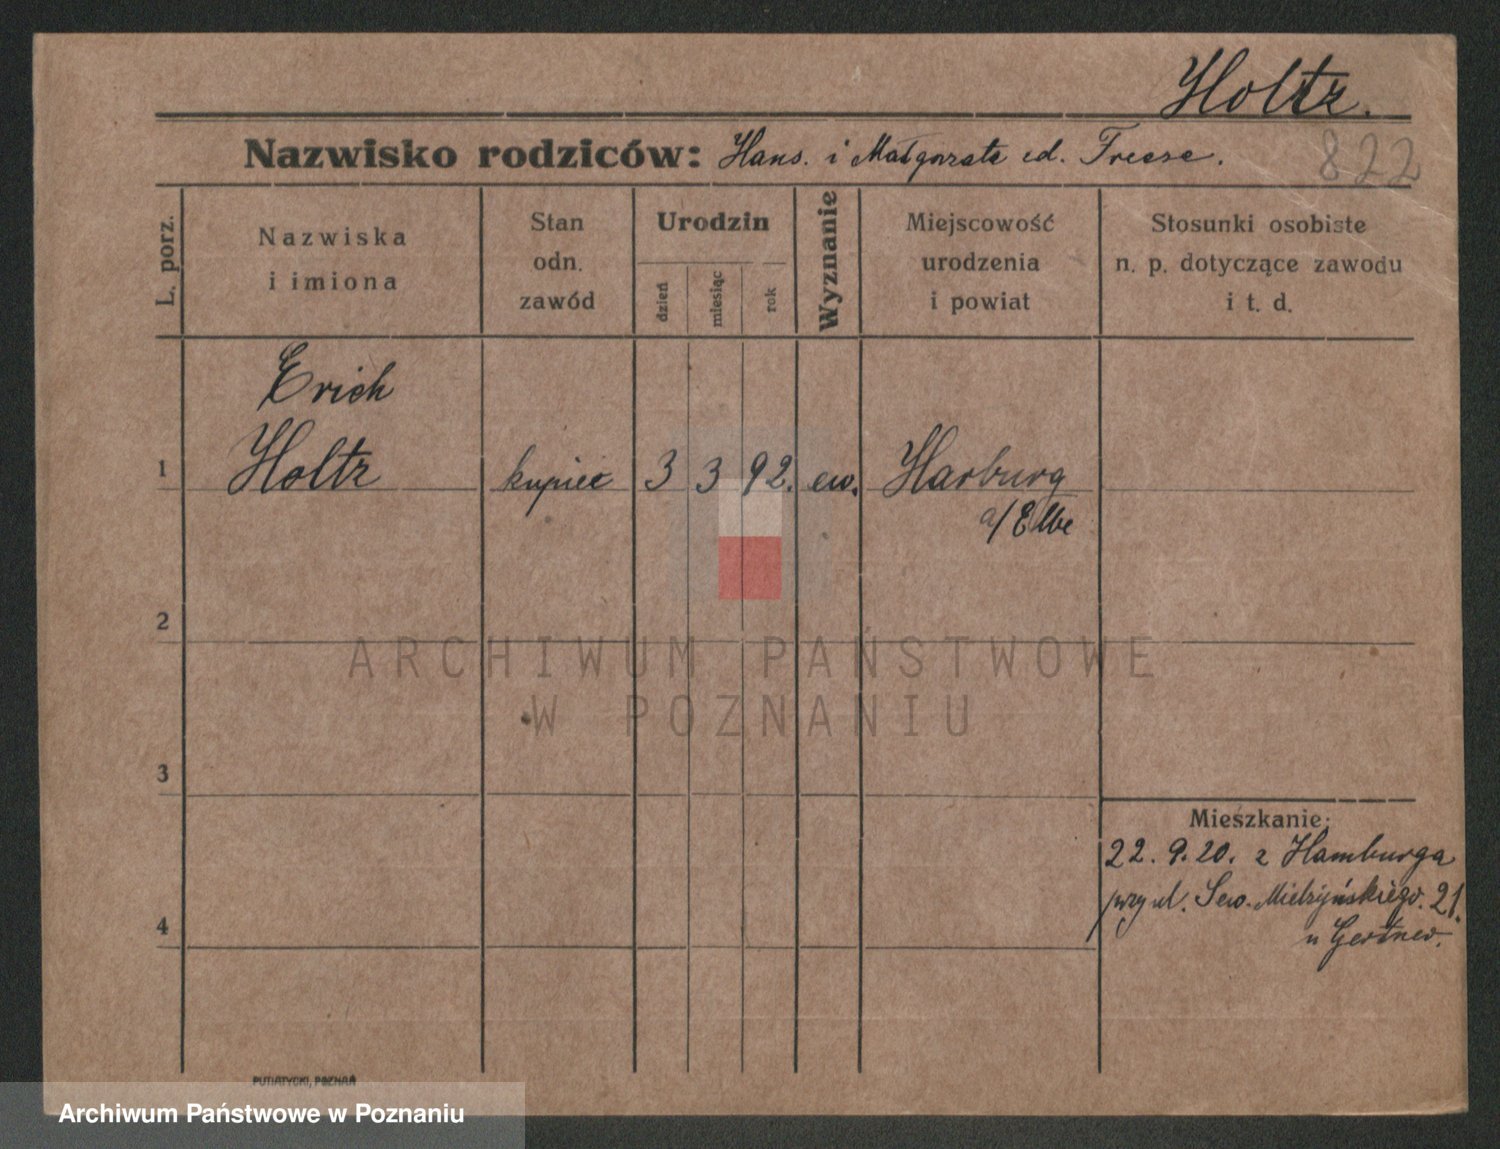 Holtz.
Nazwisko rodziców: Hans. i Małgorzata zd. Freese.
822
L. porz.
Nazwiska
i imiona
Stan
odn.
zawód
Urodzin
dzień
miesiąc
rok
Wyznanie
Miejscowość
urodzenia
i powiat
Stosunki osobiste
n. p. dotyczące zawodu
i t. d.
Erich
1 Holtz kupiec 3 3 92. ew. Harburg
a/Elbe
2
ARCHIWUM PAŃSTWOWE
W POZNANIU
3
Mieszkanie:
22. 9. 20. z Hamburga
przy ul. Sew. Mielżyńskiego. 21.
4
u
PUTIATYCKI, POZNAŃ
Archiwum Państwowe w Poznaniu